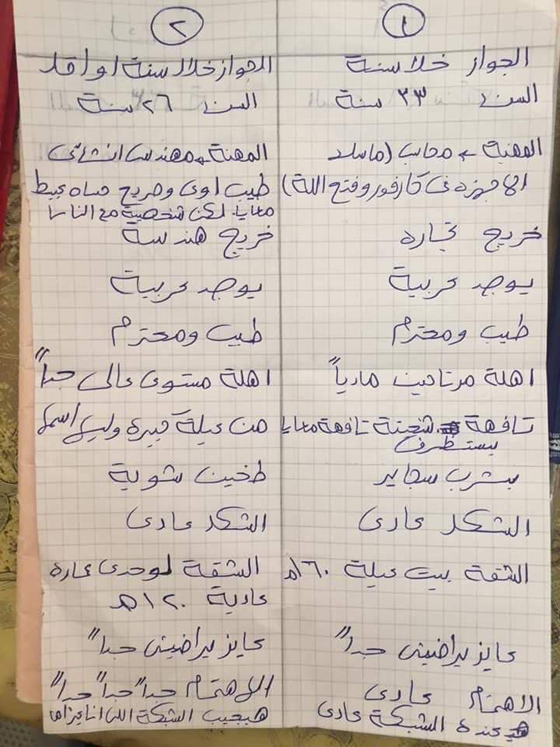 ١
الجواز خلا سنة
السن: ٣٣ سنة
المهنة محاسب (ماسك
الاجهزه فى كارفور وفتح الله)
خريج تجاره
يوجد عربية
طيب ومحترم
اهلة مرتاحين مادياً
تافهة شخصية تافهة معايا
بيستظرف
بشرب سجاير
الشكل عادى
الشقة بيت عيلة ١٦٠م
عايز يراضينى جداً
الاهتمام عادى
الشبكة عادى
٢
الجواز خلال سنة او اقل
السن ٢٦ سنة
المهنة مهندس انشائى
طيب اوى وصريح
معايا لكن شخصية مع الناس
خريج هندسة
يوجد عربية
طيب ومحترم
اهلة مستوى عالى جداً
من عيلة كبيرة وليها اسمها
طخين شوية
الشكل عادى
الشقة لوحدى عمارة
عادية ١٢٠م
عايز يراضينى جداً
الاهتمام جداً جداً جداً
هيجيب الشبكة اللى انا عيزاها